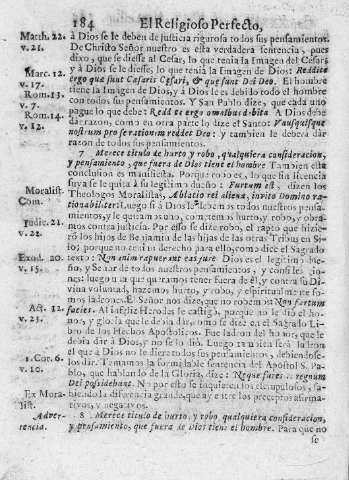 184 El Religioso Perfecto,
Matth. 22. à Dios se le deben de justicia rigurosa todos sus pensamientos.
v. 21. De Christo Señor nuestro es esta verdadera sentencia, pues
dixo, que se diesse al Cesar, lo que tenia la Imagen del Cesar;
y à Dios se le diesse, lo que tenia la Imagen de Dios: Reddite
Marc. 12. ergo quæ sunt Cæsaris Cæsari, & quæ sunt Dei Deo. El hombre
v. 17. tiene la Imagen de Dios, y à Dios le es debido todo el hombre
Rom. 13. con todos sus pensamientos. Y San Pablo dize, que cada uno
v. 7. pague lo que debe: Reddite ergo omnibus debita. A Dios debe
Rom. 14. dar razon, como en otra parte lo dize el Santo: Vnusquisque
v. 12. nostrum pro se rationem reddet Deo: y tambien le deberà dar
razon de todos sus pensamientos.
7 Merece titulo de hurto y robo, qualquiera consideracion,
y pensamiento, que fuera de Dios tiene el hombre. Tambien esta
conclusion es manifiesta. Porque robo es, lo que sin licencia
suya se le quita à su legitimo dueño: Furtum est, dizen los
Moralist. Theologos Moralistas, Ablatio rei alienæ, invito Domino ra-
Com. tionabiliter: luego si à Dios le deben nuestros pensa-
mientos, y le quitamos uno, cometemos hurto, y robo, y obra-
Iudic. 21. mos contra justicia. Por esso se dize robo, el rapto que hizie-
v. 22. rò los hijos de Benjamin de las hijas de las otras Tribus en Si-
lo; porque no tenian derecho para ello, como dice el Sagrado
Exod. 20. texto: Non enim rapuerunt eas jure. Dios es legitimo due-
v. 15. ño, y Señor de todos nuestros pensamientos, y consideracio-
nes: luego una que vamos tener fuera de èl, y contra su Di-
vina voluntad, hazemos hurto, y robo, y espiritualmente so-
mos ladrones. El Señor nos dize, que no robemos: Non furtum
Act. 12. facies. Al infeliz Herodes le castigò, porque no le diò el ho-
v. 23. nor, y gloria que le debia dar, como se dize en el Sagrado Li-
bro de los Hechos Apostolicos. Fue ladron del honor, que le
debia dar à Dios, y no se lo diò. Luego tambien serà ladron
el que à Dios no le diere todos sus pensamientos, debiendose-
1. Cor. 6. los dar. Tomamos la formidable sentencia del Apostol S. Pa-
v. 10. blo, que hablando de la Gloria, dize: Neque fures regnum
Dei possidebunt. No por esto se inquieten los escrupulosos, sa-
Ex Mora- biendo la diferencia grande, que ay entre los preceptos afirma-
list. tivos, y negativos.
Adver- 8 Merece titulo de hurto, y robo, qualquiera consideracion,
tencia. y pensamiento, que fuera de Dios tiene el hombre. Para que no
se